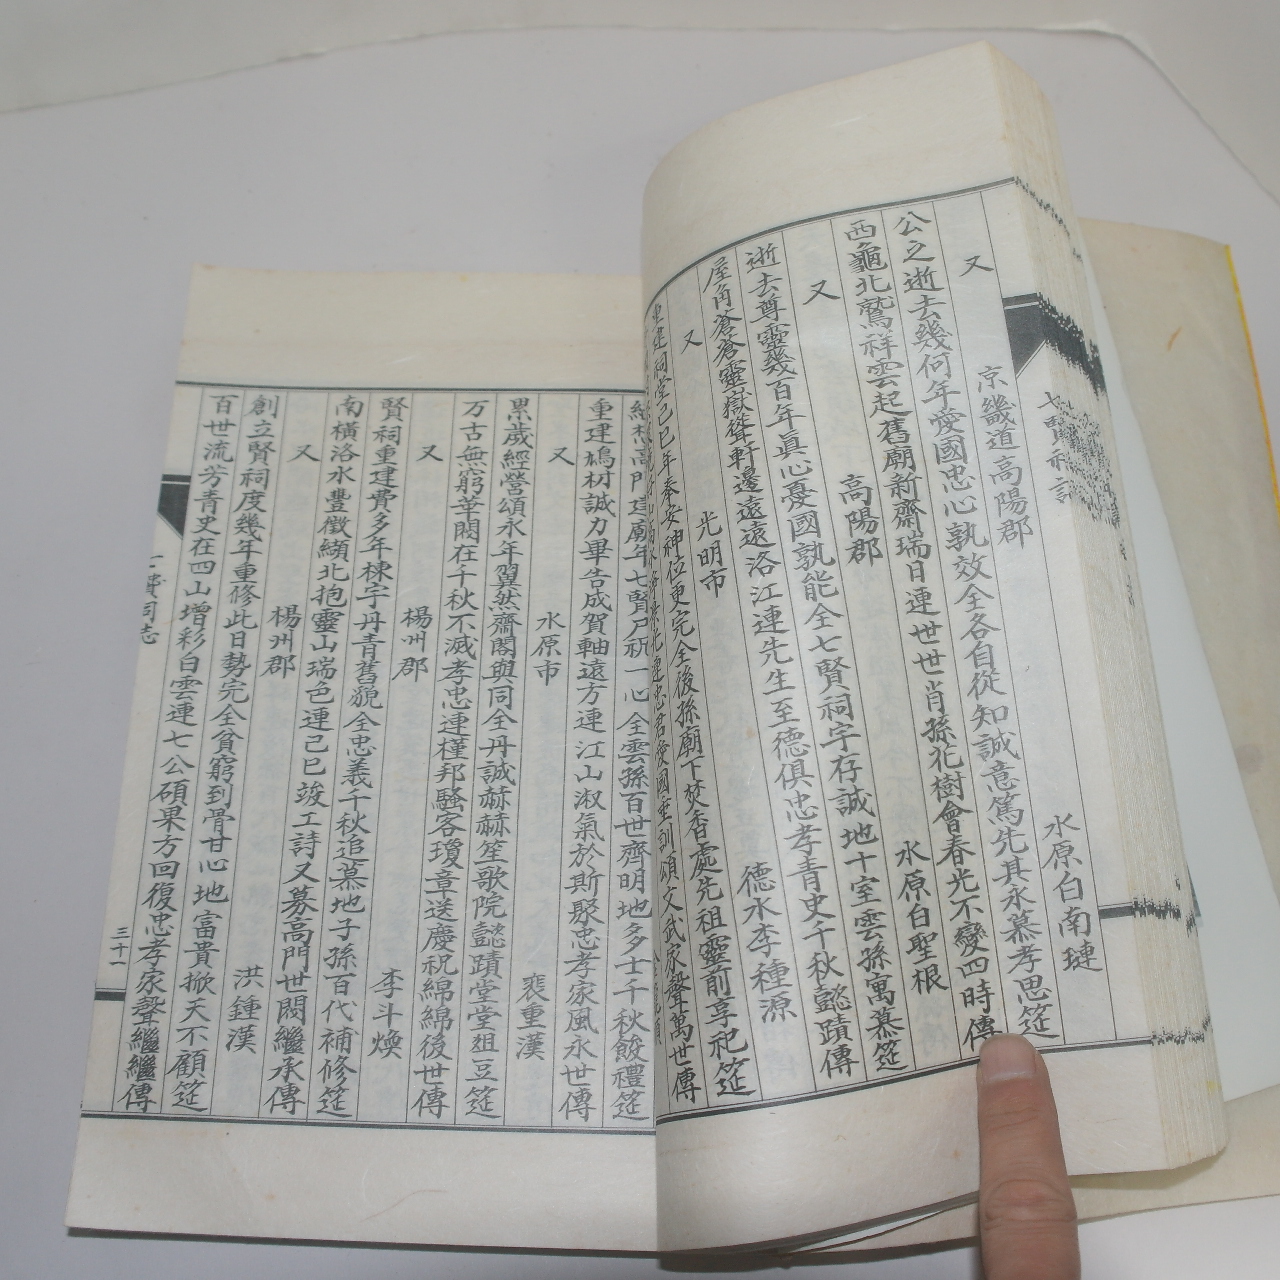 七賢祠
又 京畿道高陽郡 水原白南璉
公之逝去幾何年愛國忠心孰效全各自從知誠意篤先其永慕孝思筵
西龜北鷲祥雲起舊廟新齋瑞日連世世肖孫花樹會春光不變四時傳
又 高陽郡 水原白聖根
逝去尊靈幾百年眞心憂國孰能全七賢祠宇存誠地十室雲孫寓慕筵
屋角蒼蒼靈嶽聳軒邊遠遠洛江連先生至德俱忠孝青史千秋懿蹟傳
又 光明市 德水李種源
重建祠堂己巳年奉安神位更完全後孫廟下焚香處先祖靈前享祀筵
忠君愛國垂訓頌文武家聲萬世傳
高門建廟年七賢尸祝一心全雲孫百世齊明地多士千秋餕禮筵
重建鳩材誠力畢告成賀軸遠方連江山淑氣於斯聚忠孝家風永世傳
又 水原市 裵重漢
累歲經營頌永年翼然齋閣與同全丹誠赫赫笙歌院懿蹟堂堂俎豆筵
万古無窮華閥在千秋不滅孝忠連槿邦騷客瓊章送慶祝綿綿後世傳
又 楊州郡 李斗煥
賢祠重建費多年棟宇丹青舊貌全忠義千秋追慕地子孫百代補修筵
南橫洛水豊徵纈北抱靈山瑞色連己巳竣工詩又募高門世閥繼承傳
又 楊州郡 洪鍾漢
創立賢祠度幾年重修此日勢完全貧窮到骨甘心地富貴掀天不顧筵
百世流芳青史在四山增彩白雲連七公碩果方回復忠孝家聲繼繼傳
賢祠志 三十一